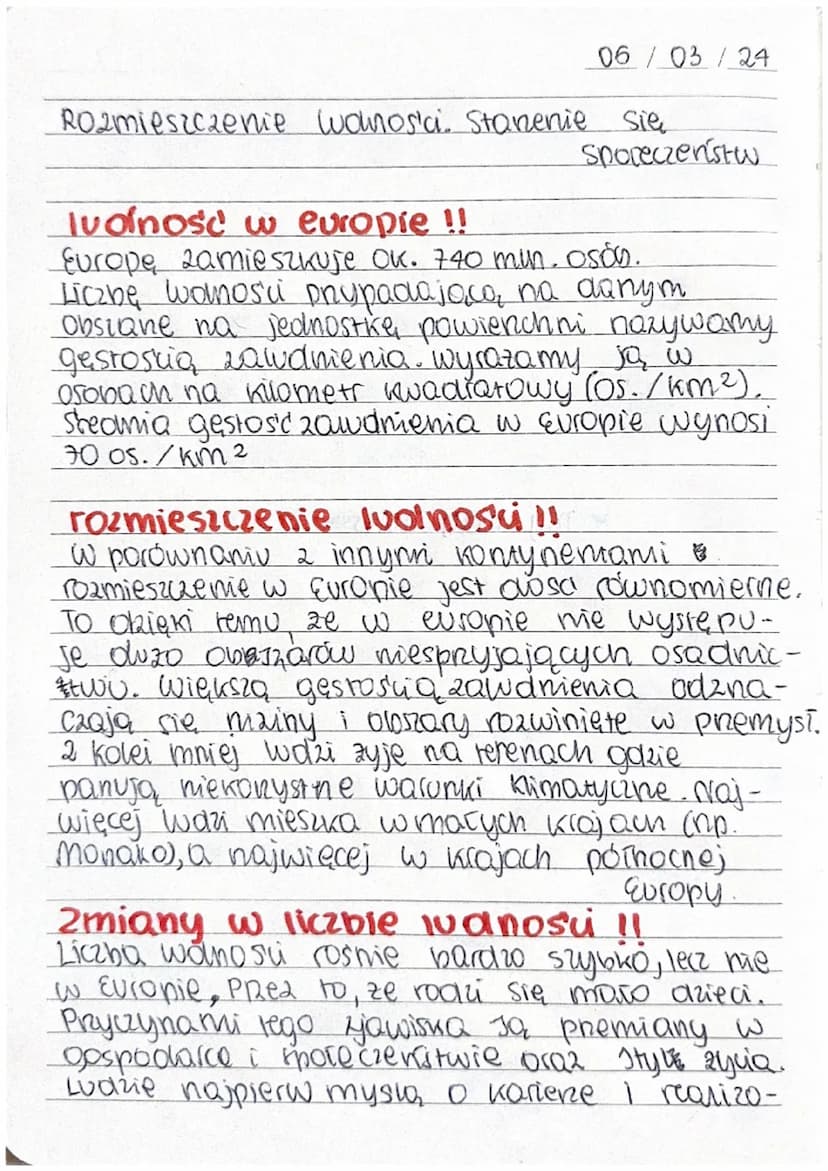 06 / 03 / 24
Rozmieszczenie ludności. Starzenie się
społeczeństw
ludność w europie !!
Europę zamieszkuje ok. 740 mln. osób.
Liczbę ludności przypadającą na danym
obszarze na jednostkę powierzchni nazywamy
gęstością zaludnienia. wyrażamy ją w
osobach na kilometr kwadratowy (os./km²).
Średnia gęstość zaludnienia w Europie wynosi
70 os./km²
rozmieszczenie ludności !!
W porównaniu z innymi kontynentami
rozmieszczenie w Europie jest dość równomierne.
To dzięki temu, że w europie nie występu-
je dużo obszarów niesprzyjających osadnic-
twu. Większą gęstością zaludnienia odzna-
czają się niziny i obszary rozwinięte w przemyśl.
Z kolei mniej ludzi żyje na terenach gdzie
panują niekorzystne warunki klimatyczne. Naj-
więcej ludzi mieszka w małych krajach (np.
Monako), a najwięcej w krajach północnej
Europy.
Zmiany w liczbie ludności !!
Liczba ludności rośnie bardzo szybko, lecz nie
w Europie, Przez to, że rodzi się mało dzieci.
Przyczynami tego zjawiska są przemiany w
gospodarce i społeczeństwie oraz stylu życia.
Ludzie najpierw myślą o karierze i realizo-